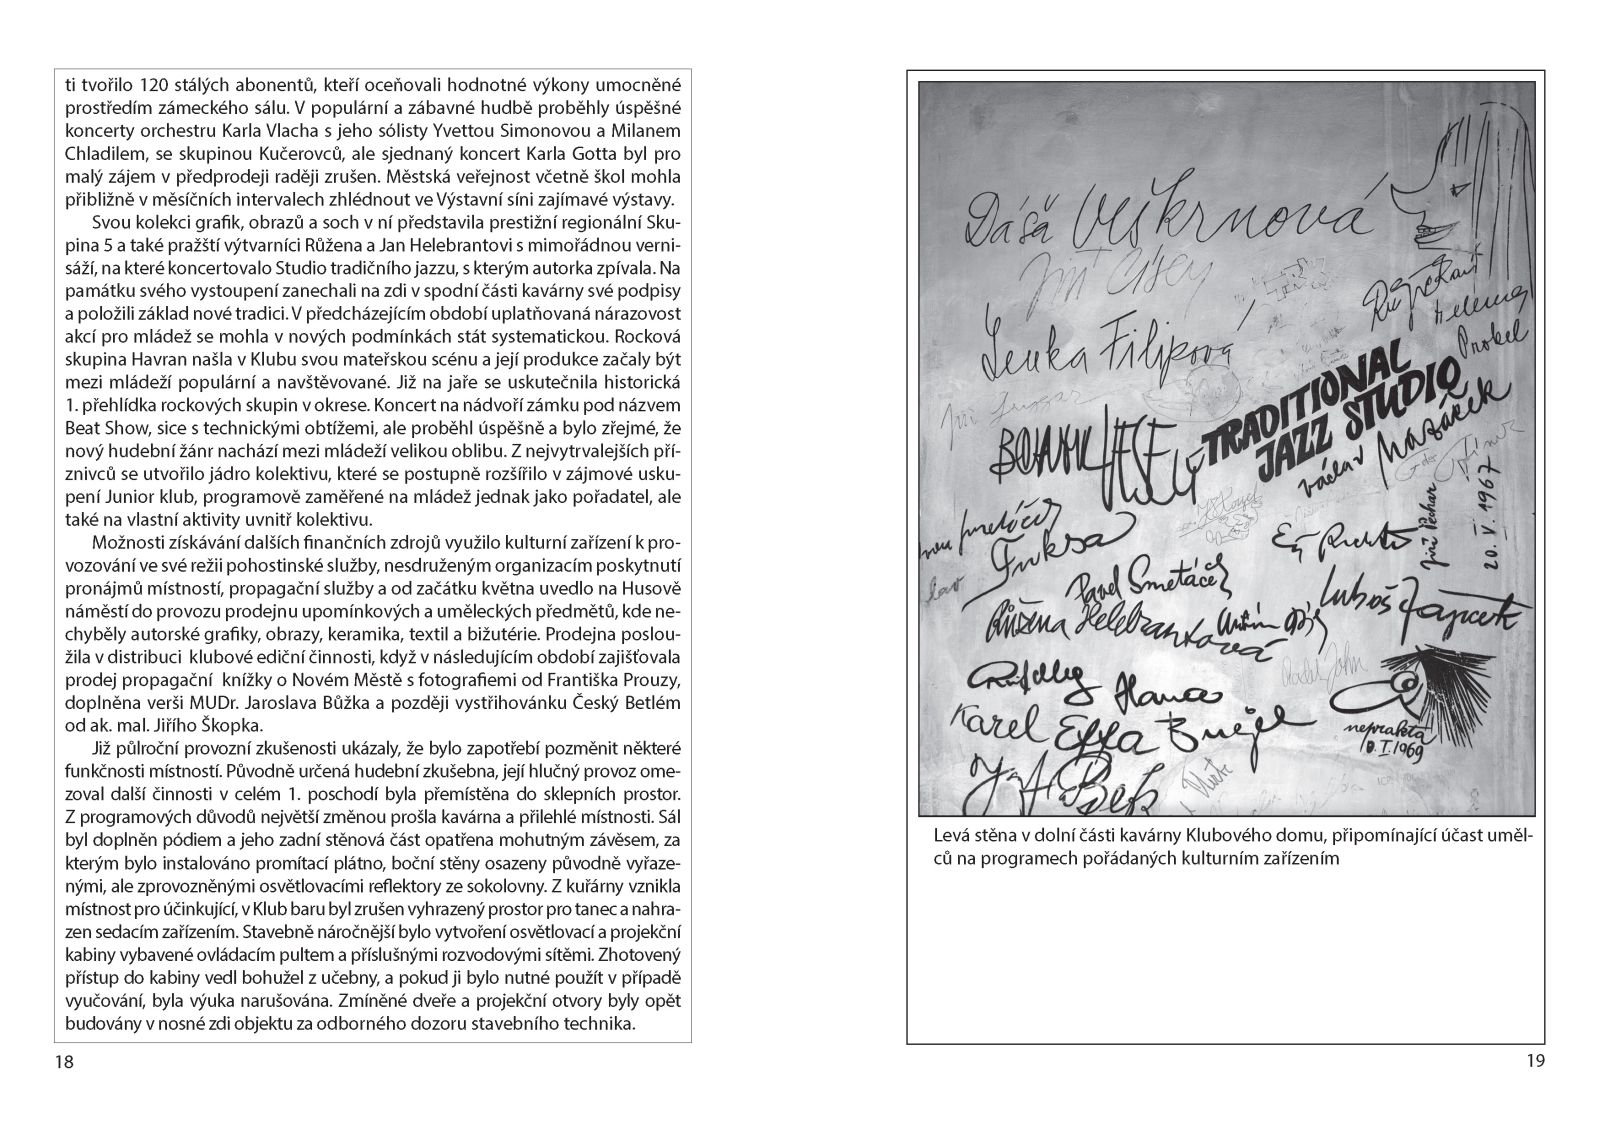 ti tvořilo 120 stálých abonentů, kteří oceňovali hodnotné výkony umocněné
prostředím zámeckého sálu. V populární a zábavné hudbě proběhly úspěšné
koncerty orchestru Karla Vlacha s jeho sólisty Yvettou Simonovou a Milanem
Chladilem, se skupinou Kučerovců, ale sjednaný koncert Karla Gotta byl pro
malý zájem v předprodeji raději zrušen. Městská veřejnost včetně škol mohla
přibližně v měsíčních intervalech zhlédnout ve Výstavní síni zajímavé výstavy.
Svou kolekci grafik, obrazů a soch v ní představila prestižní regionální Sku-
pina 5 a také pražští výtvarníci Růžena a Jan Helebrantovi s mimořádnou verni-
sáží, na které koncertovalo Studio tradičního jazzu, s kterým autorka zpívala. Na
památku svého vystoupení zanechali na zdi v spodní části kavárny své podpisy
a položili základ nové tradici. V předcházejícím období uplatňovaná nárazovost
akcí pro mládež se mohla v nových podmínkách stát systematickou. Rocková
skupina Havran našla v Klubu svou mateřskou scénu a její produkce začaly být
mezi mládeží populární a navštěvované. Již na jaře se uskutečnila historická
1. přehlídka rockových skupin v okrese. Koncert na nádvoří zámku pod názvem
Beat Show, sice s technickými obtížemi, ale proběhl úspěšně a bylo zřejmé, že
nový hudební žánr nachází mezi mládeží velikou oblibu. Z nejvytrvalejších pří-
znivců se utvořilo jádro kolektivu, které se postupně rozšířilo v zájmové usku-
pení Junior klub, programově zaměřené na mládež jednak jako pořadatel, ale
také na vlastní aktivity uvnitř kolektivu.
Možnosti získávání dalších finančních zdrojů využilo kulturní zařízení k pro-
vozování ve své režii pohostinské služby, nesdruženým organizacím poskytnutí
pronájmů místností, propagační služby a od začátku května uvedlo na Husově
náměstí do provozu prodejnu upomínkových a uměleckých předmětů, kde ne-
chyběly autorské grafiky, obrazy, keramika, textil a bižutérie. Prodejna poslou-
žila v distribuci klubové ediční činnosti, když v následujícím období zajišťovala
prodej propagační knížky o Novém Městě s fotografiemi od Františka Prouzy,
doplněna verši MUDr. Jaroslava Bůžka a později vystřihovánku Český Betlém
od ak. mal. Jiřího Škopka.
Již půlroční provozní zkušenosti ukázaly, že bylo zapotřebí pozměnit některé
funkčnosti místností. Původně určená hudební zkušebna, její hlučný provoz ome-
zoval další činnosti v celém 1. poschodí byla přemístěna do sklepních prostor.
Z programových důvodů největší změnou prošla kavárna a přilehlé místnosti. Sál
byl doplněn pódiem a jeho zadní stěnová část opatřena mohutným závěsem, za
kterým bylo instalováno promítací plátno, boční stěny osazeny původně vyřaze-
nými, ale zprovozněnými osvětlovacími reflektory ze sokolovny. Z kuřárny vznikla
místnost pro účinkující, v Klub baru byl zrušen vyhrazený prostor pro tanec a nahra-
zen sedacím zařízením. Stavebně náročnější bylo vytvoření osvětlovací a projekční
kabiny vybavené ovládacím pultem a příslušnými rozvodovými sítěmi. Zhotovený
přístup do kabiny vedl bohužel z učebny, a pokud ji bylo nutné použít v případě
vyučování, byla výuka narušována. Zmíněné dveře a projekční otvory byly opět
budovány v nosné zdi objektu za odborného dozoru stavebního technika.
18
Dáša Veškrnová
Jiří Císey
Lenka Filipová
TRADITIONAL
JAZZ STUDIO
Václav Mazáček
Jiří Pechar
20. V. 1967
Fuksa
Pavel Smetáček
Luboš Zajíček
Růžena Helebrantová
Hana
Karel Effa
Radek John
neprakta
10. I. 1969
Levá stěna v dolní části kavárny Klubového domu, připomínající účast uměl-
ců na programech pořádaných kulturním zařízením
19